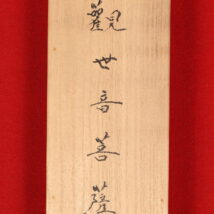 觀世音菩薩